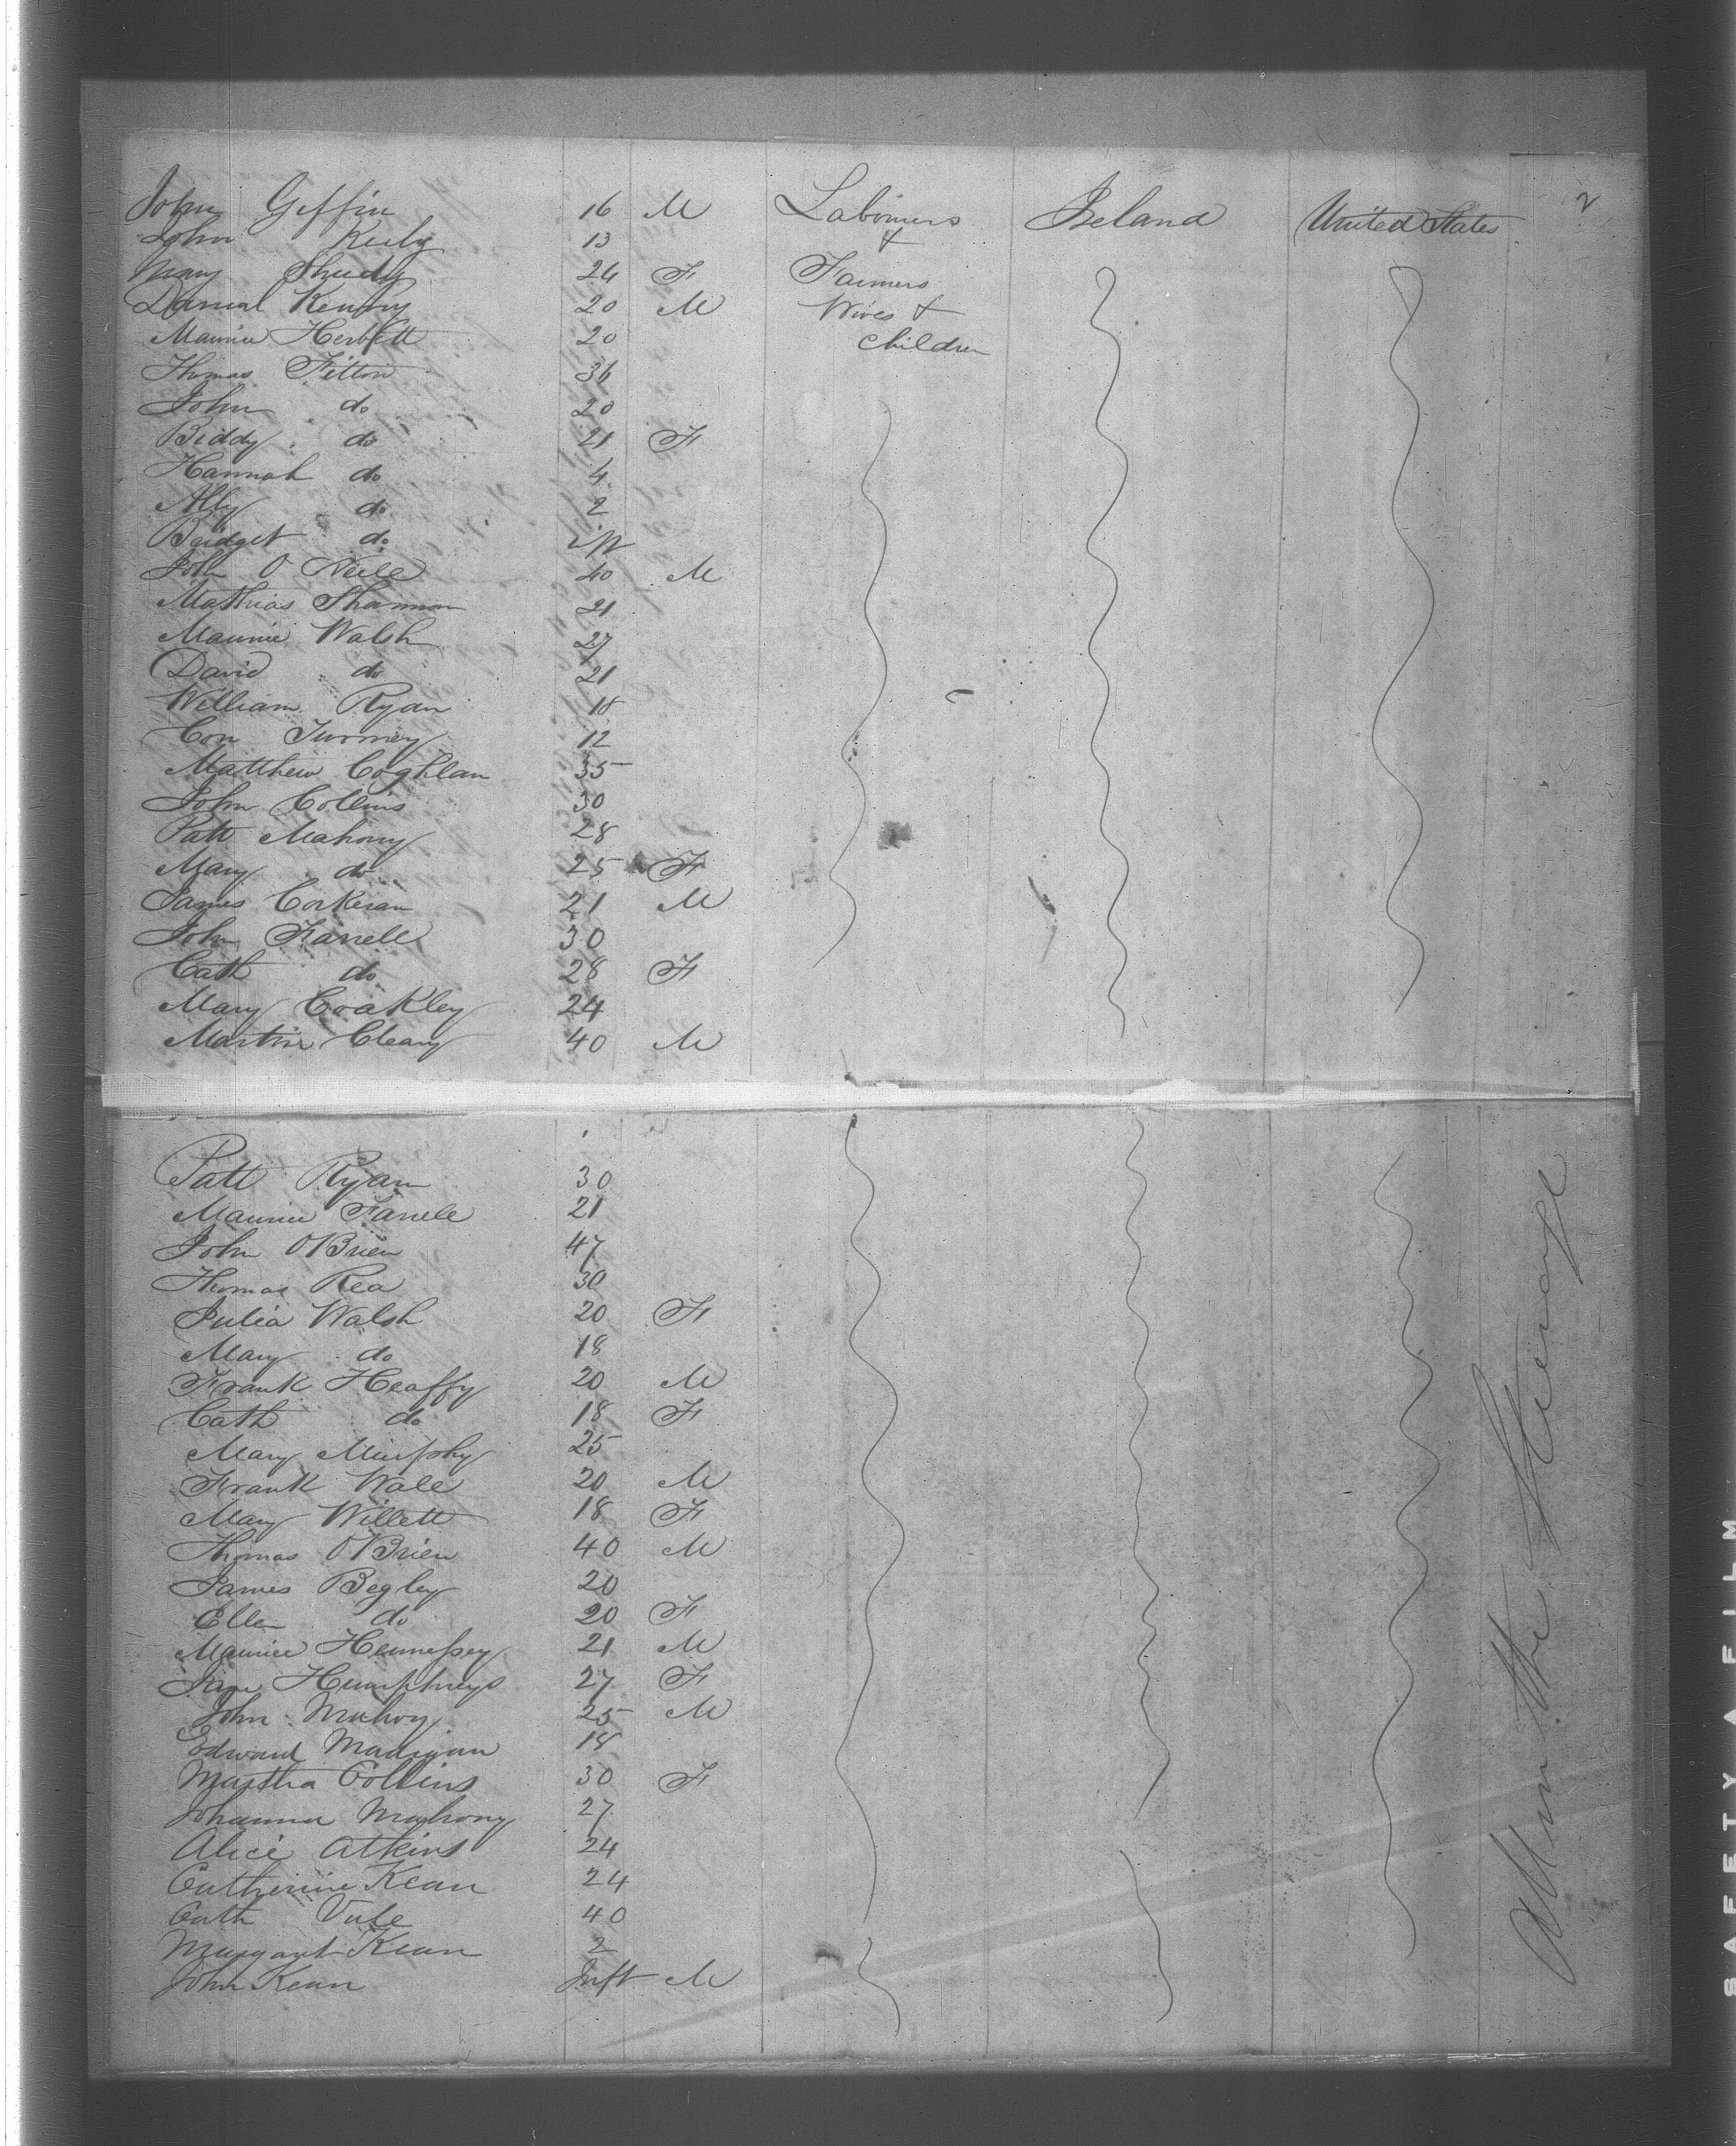 John Giffin 16 M Labourers Ireland United States 2
John Kuby 13 &
Mary Sheedy 24 F Farmers
Danial Kenny 20 M Wives &
Maurice Herbert 20 Children
Thomas Fitton 36
John do 20
Biddy do 21 F
Hannah do 4
Ally do 2
Bridget do inft
John O Neill 40 M
Mathias Shannon 21
Maurice Walsh 27
David do 21
William Ryan 18
Con Twomey 12
Matthew Coghlan 35
John Collins 30
Patt Mahony 28
Mary do 25 F
James Corkeran 21 M
John Farrell 30
Cath do 28 F
Mary Coakley 24
Martin Cleary 40 M
Patt Ryan 30
Maurice Farrell 21
John OBrien 47
Thomas Rea 30
Julia Walsh 20 F
Mary do 18
Frank Heaffy 20 M
Cath do 18 F
Mary Murphy 25
Frank Wall 20 M
Mary Willett 18 F
Thomas OBrien 40 M
James Begley 20
Ellen do 20 F
Maurice Hennessey 21 M
Jane Humphreys 27 F
John Mahony 25 M
Edward Madigan 18
Martha Collins 30 F
Johanna Mahony 27
Alice Atkins 24
Catherine Kean 24
Cath Vale 40
Margaret Kean 2
John Kean Inft M
All in the Steerage
SAFETY A FILM